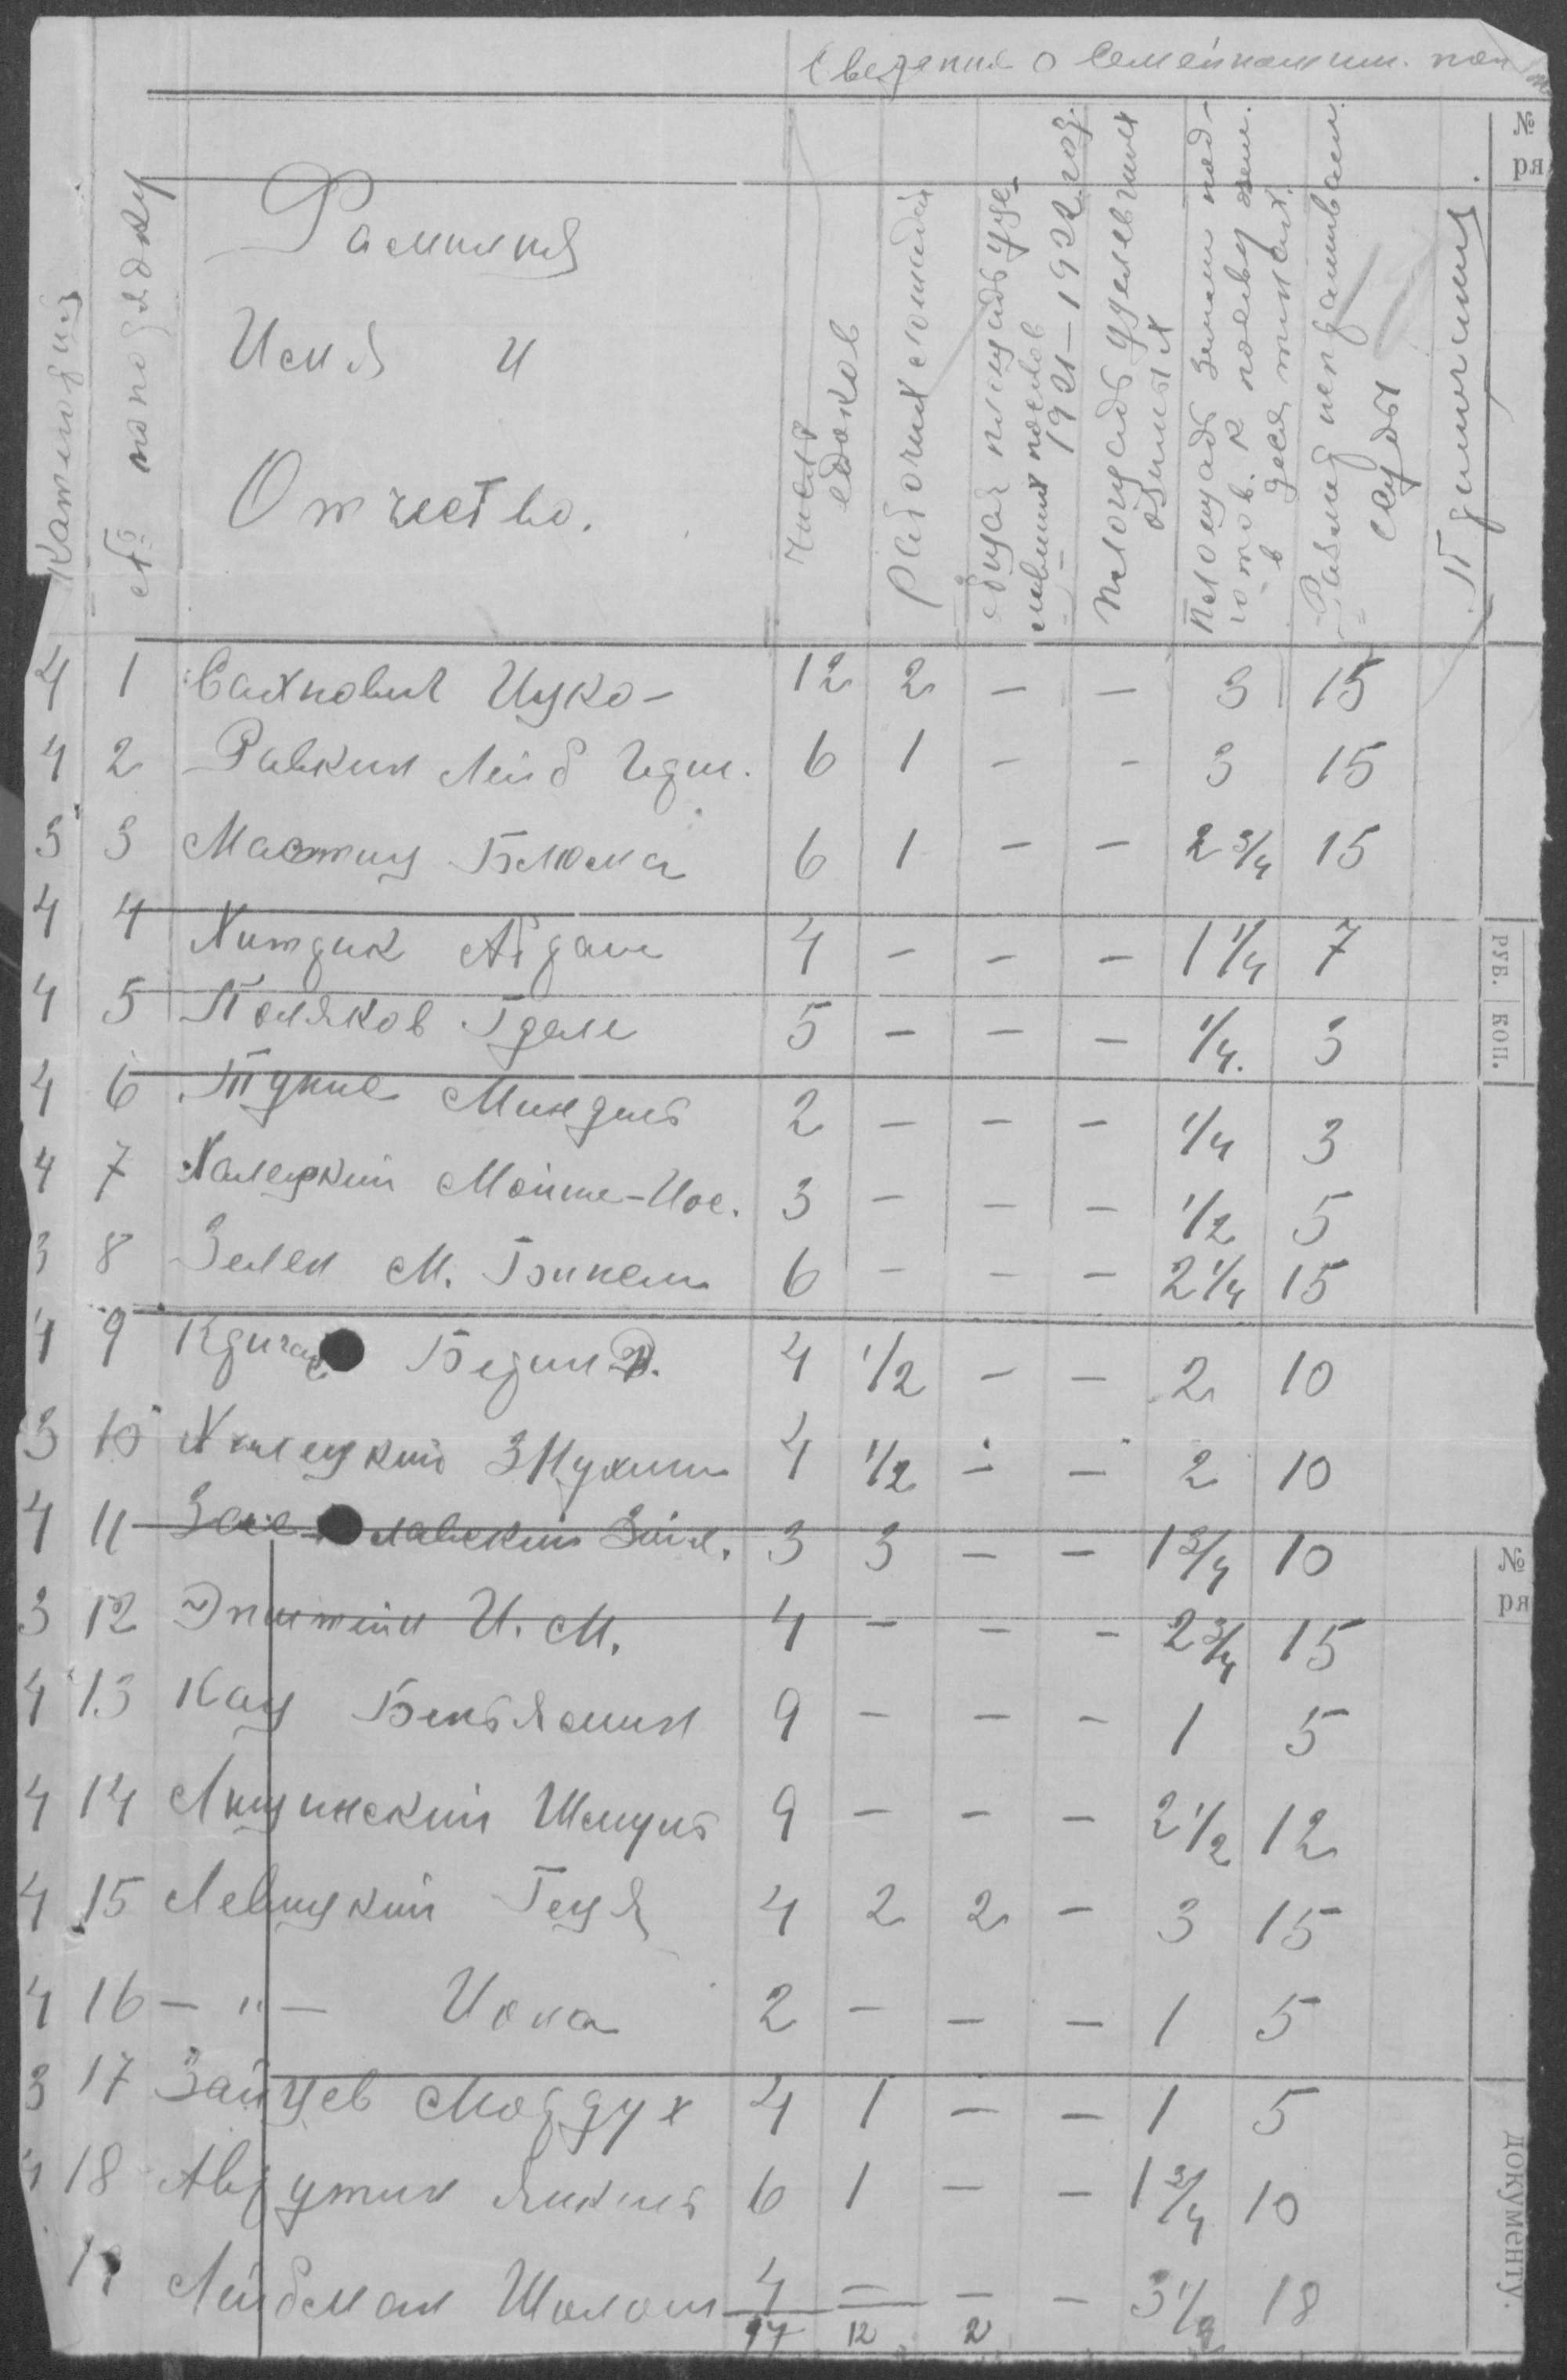 Сведения о Семейном им. пол
№
ря
Категория
№ по порядку
Фамилия
Имя и
Отчество.
Число едоков
Рабочих лошадей
Общая площадь уце-
левших посевов
1921–1922 год.
Площадь уцелевших
озимых
Площадь земли под-
готов. к посеву яем.
в десятинах.
Размер испрашиваем.
ссуды
Примечания
4 1 Сахнович Ицко – 12 2 – – 3 15
4 2 Равкин Лейб Гдш. 6 1 – – 3 15
3 3 Мастиц Блюма 6 1 – – 2 3/4 15
4 4 Хитрик Абрам 4 – – – 1 1/4 7
РУБ. КОП.
4 5 Поляков Гдале 5 – – – 1/4. 3
4 6 Мindель 2 – – – 1/4 3
4 7 Халецкий Мойше-Иос. 3 – – – 1/2 5
3 8 Зелен М. 6 – – – 2 1/4 15
4 9 4 1/2 – – 2 10
3 10 Халецкий 4 1/2 – – 2 10
4 11 3 3 – – 1 3/4 10
№
ря
3 12 Эпштейн И. М. 4 – – – 2 3/4 15
4 13 Кац Беньямин 9 – – – 1 5
4 14 Шмуль 9 – – – 2 1/2 12
4 15 Левицкий Геця 4 2 2 – 3 15
4 16 – " – Иона 2 – – – 1 5
3 17 Зайцев Мордух 4 1 – – 1 5
4 18 Аврутин Янкель 6 1 – – 1 3/4 10
19 Лейбман Шолом 4 – – – 3 1/2 18
97 12 2
ДОКУМЕНТУ.